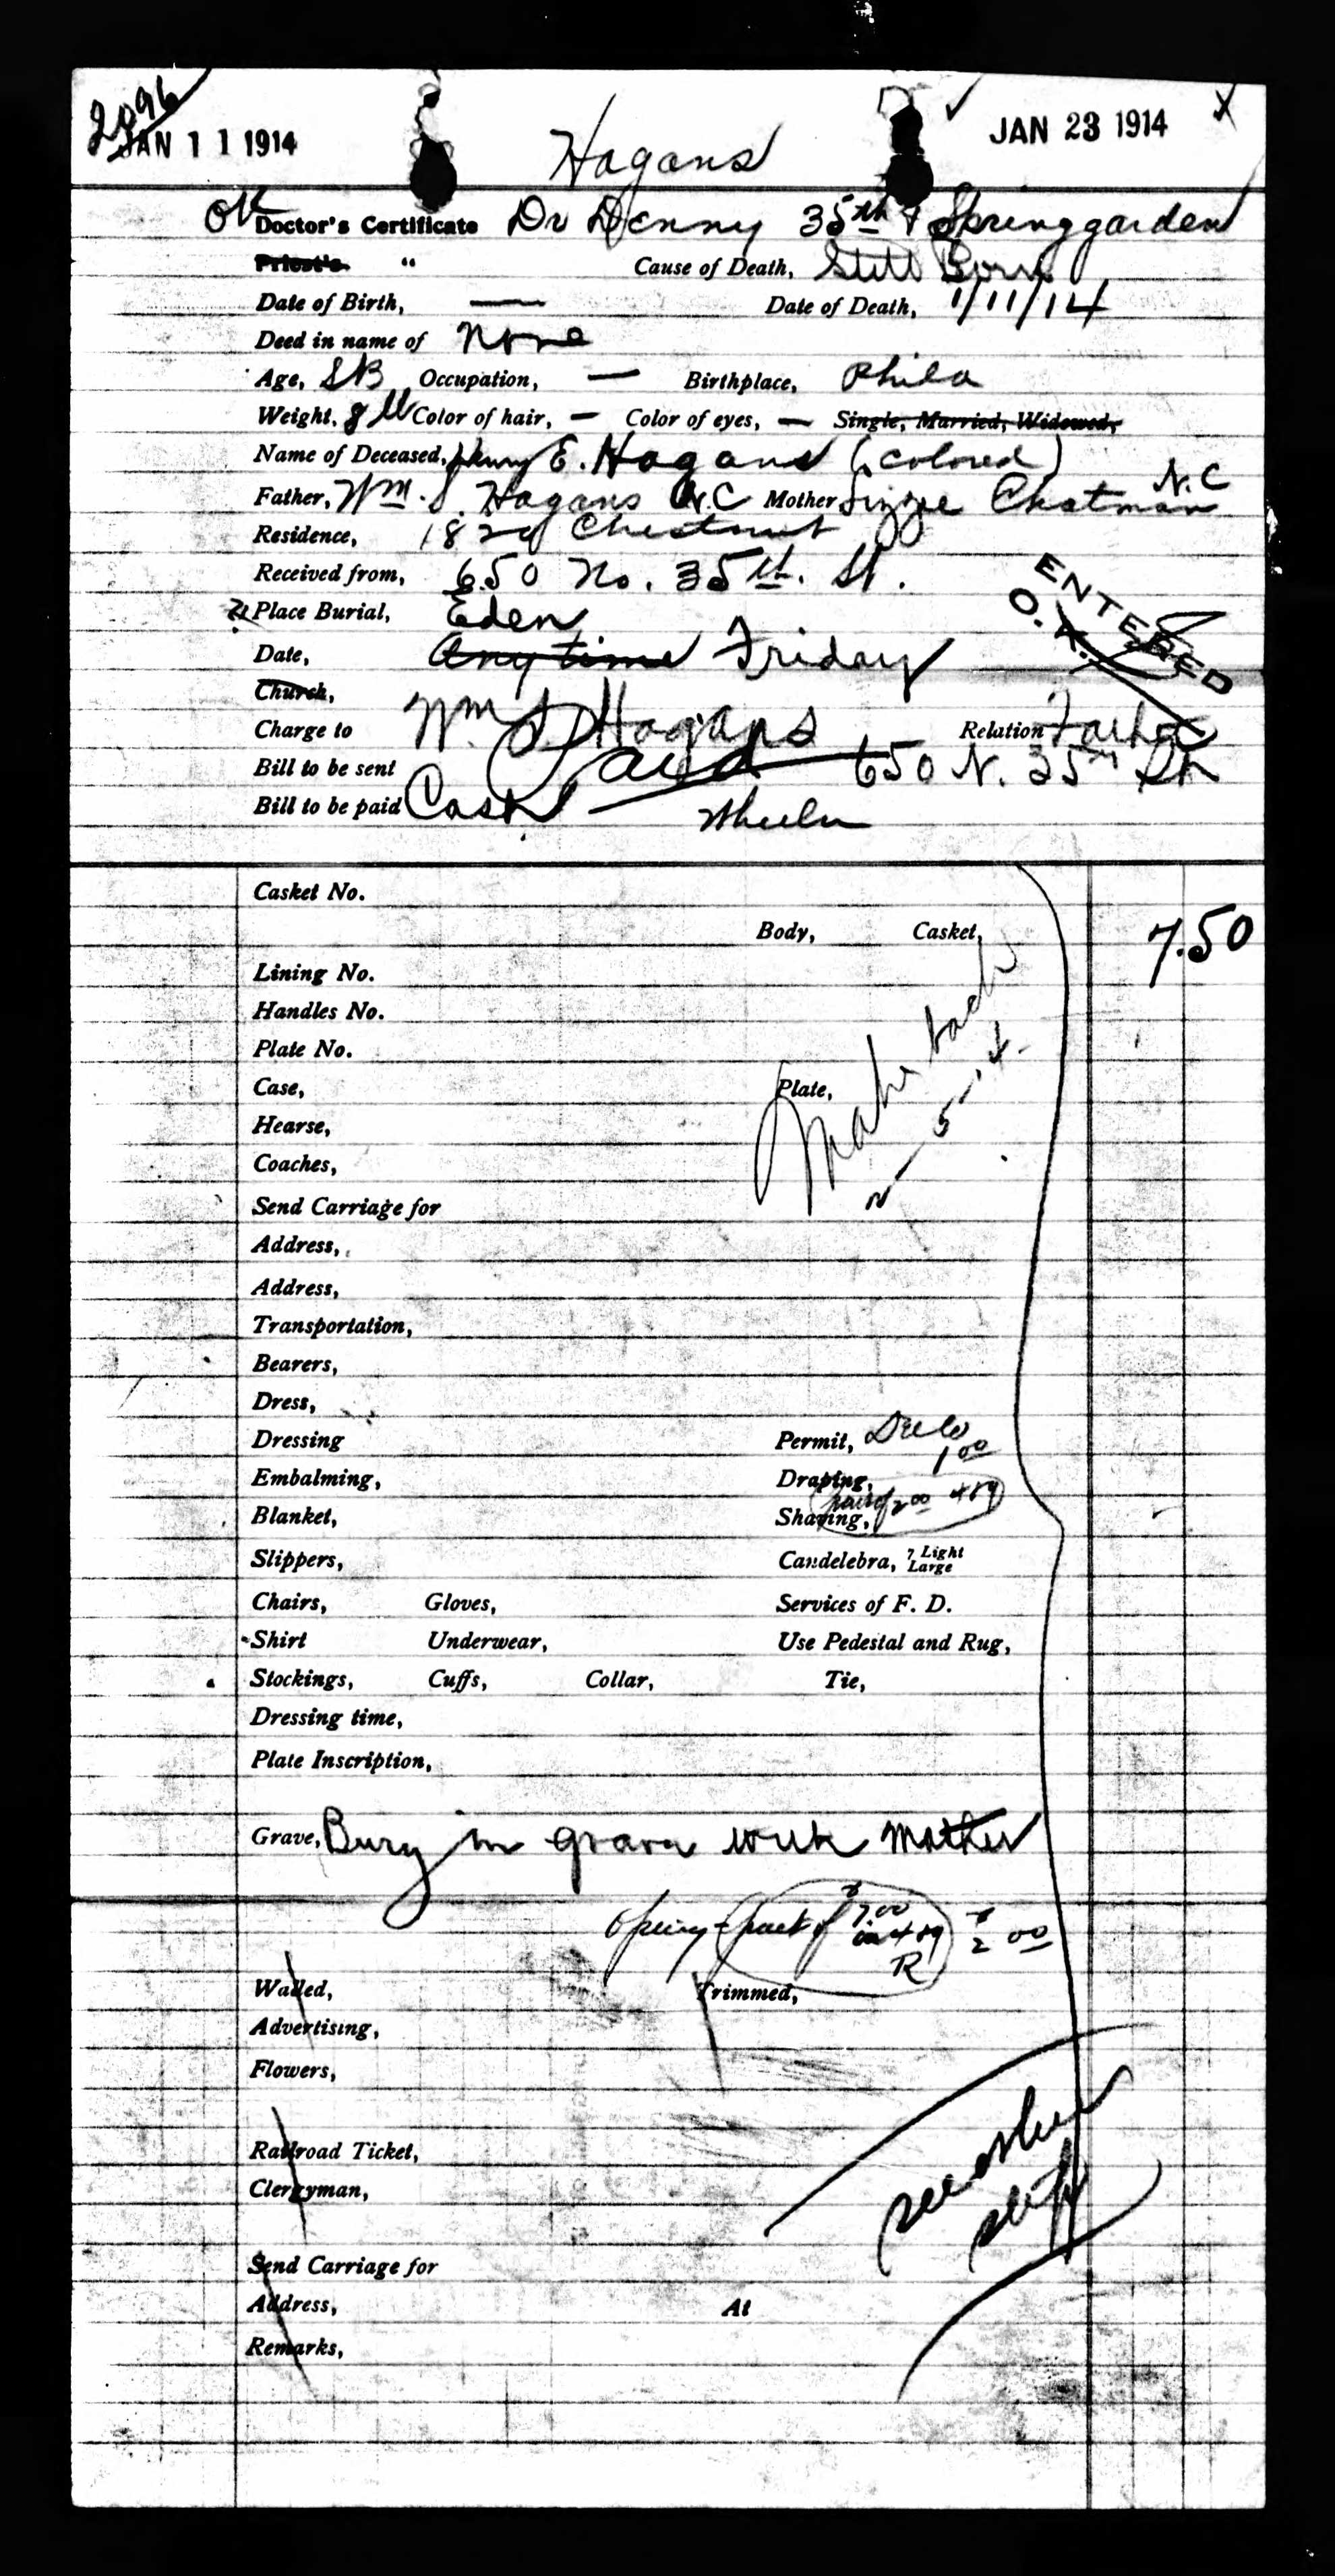 2096
JAN 11 1914
Hagans
JAN 23 1914
OK Doctor's Certificate Dr Denny 35th & Springgarden
Priest's " Cause of Death, Still Born
Date of Birth, — Date of Death, 1/11/14
Deed in name of None
Age, SB Occupation, — Birthplace, Phila
Weight, 8 Color of hair, — Color of eyes, — Single, Married, Widowed,
Name of Deceased, Henry E. Hagans (colored)
Father, Wm. S. Hagans N.C Mother Lizzie Chatman N.C
Residence, 1820 Chestnut
Received from, 650 No. 35th. St.
Place Burial, Eden
ENTERED
O.K.
Date, Any time Friday
Church,
Charge to Wm S. Hagans Relation Father
Bill to be sent Paid 650 N. 35th St
Bill to be paid Cash Wheeler
Casket No.
Body, Casket, 7.50
Lining No.
Handles No.
Plate No.
Case, Plate,
Hearse,
Coaches,
Send Carriage for
Address,
Address,
Transportation,
Bearers,
Dress,
Dressing Permit, 1 00
Embalming, Draping,
part of 2 00 489
Blanket, Shaving,
Slippers, Candelebra, 7 Light Large
Chairs, Gloves, Services of F. D.
Shirt Underwear, Use Pedestal and Rug,
Stockings, Cuffs, Collar, Tie,
Dressing time,
Plate Inscription,
Grave, Bury in grave with Mother
Opening - part of 7.00 in 489 R 2 00
Walled, Trimmed,
Advertising,
Flowers,
Railroad Ticket,
Clergyman,
see other slip
Send Carriage for
Address, At
Remarks,